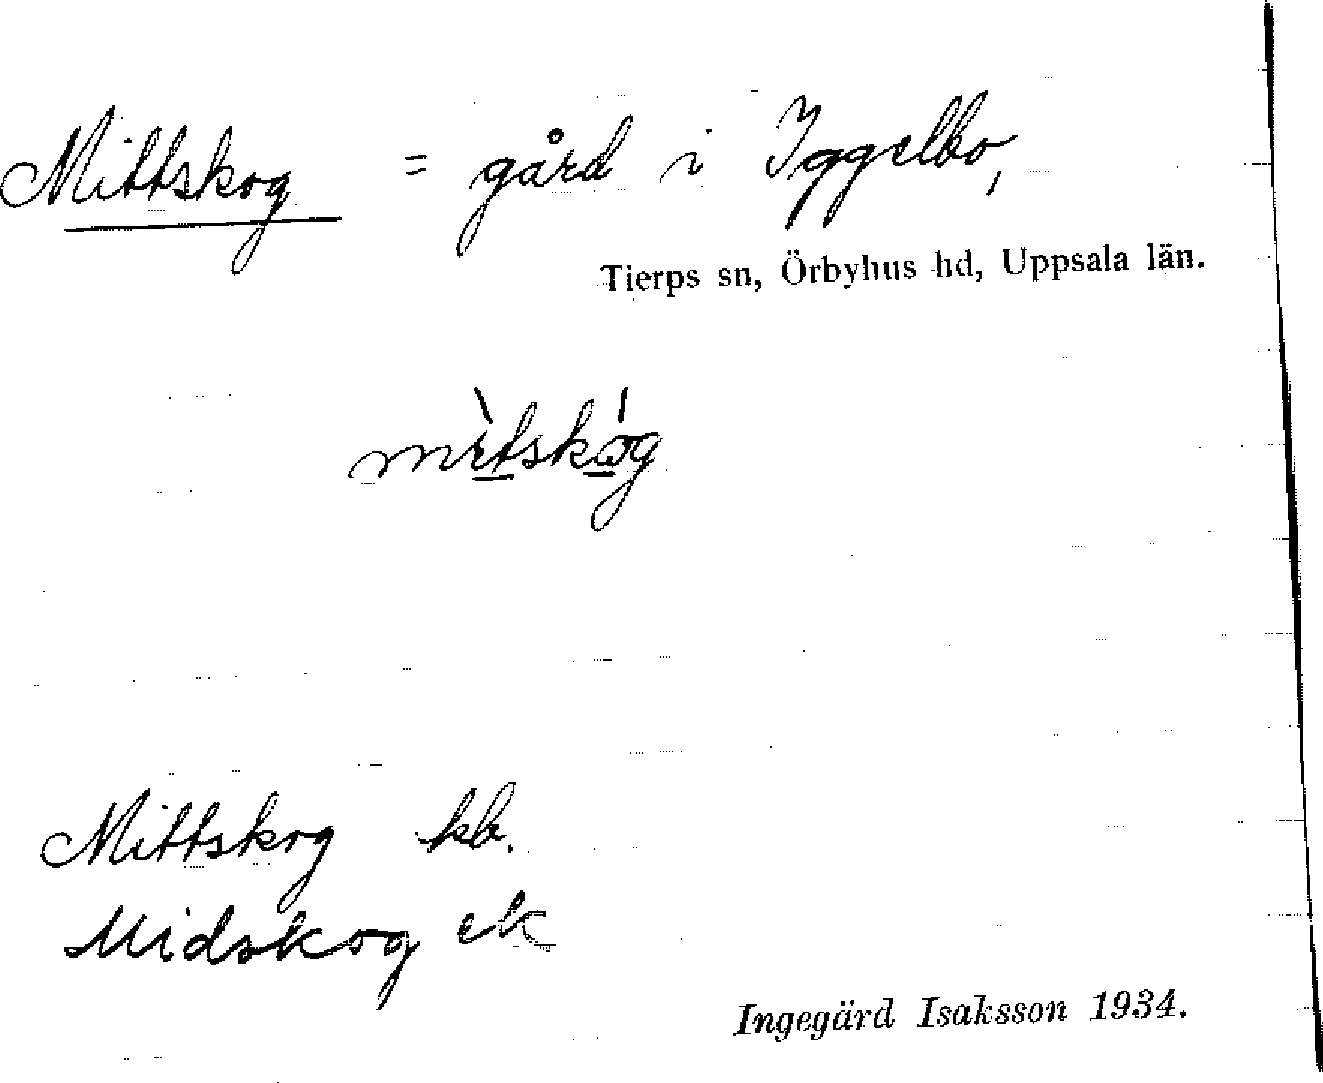 Mittskog = gård i Iggelbo,
Tierps sn, Örbyhus hd, Uppsala län.
mìtskóg
Mittskog kb.
Midskog ek
Ingegärd Isaksson 1934.